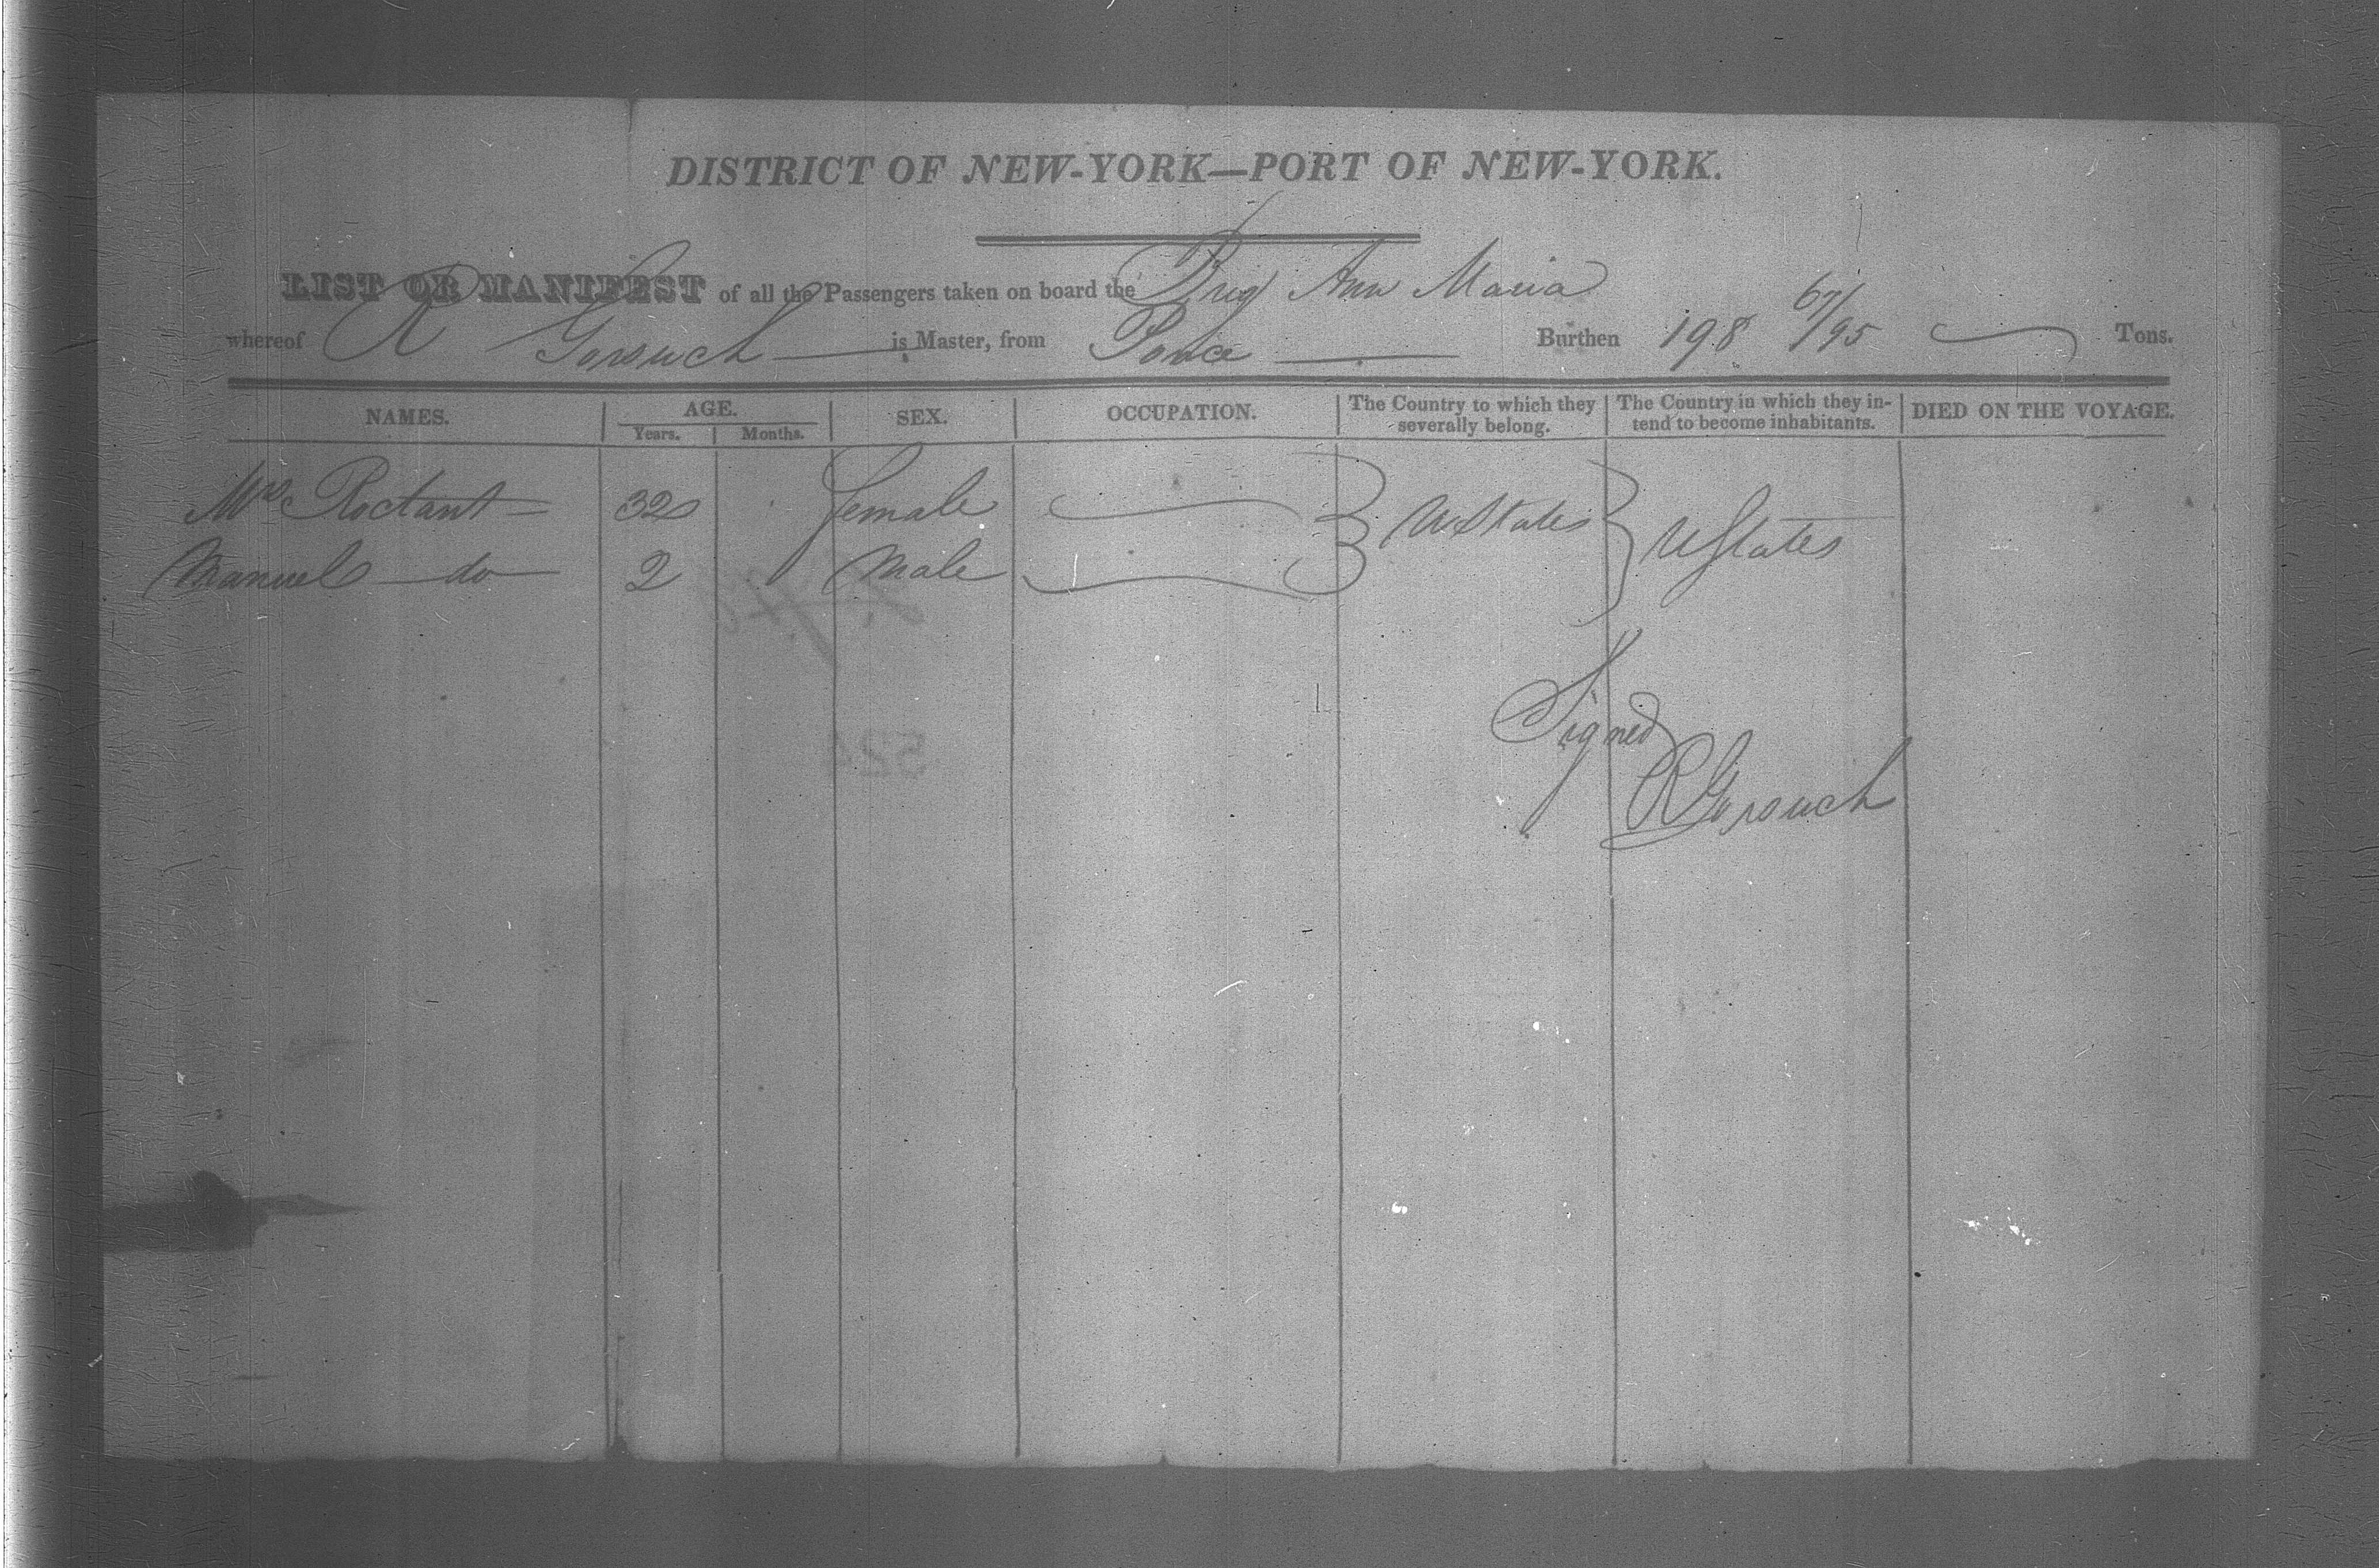 DISTRICT OF NEW-YORK—PORT OF NEW-YORK.
LIST OR MANIFEST of all the Passengers taken on board the Brig Ann Maria
whereof R Gorsuch is Master, from Ponce Burthen 198 67/95 Tons.
NAMES. AGE. SEX. OCCUPATION. The Country to which they severally belong. The Country in which they intend to become inhabitants. DIED ON THE VOYAGE.
Years. Months.
Mrs Roctant 32 female U States U States
Manuel do 2 Male
Signed
R Gorsuch